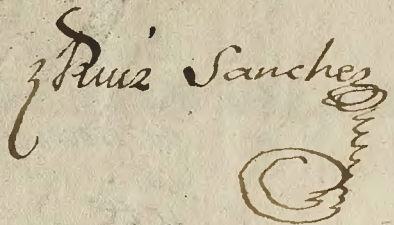 Ruiz Sanchez